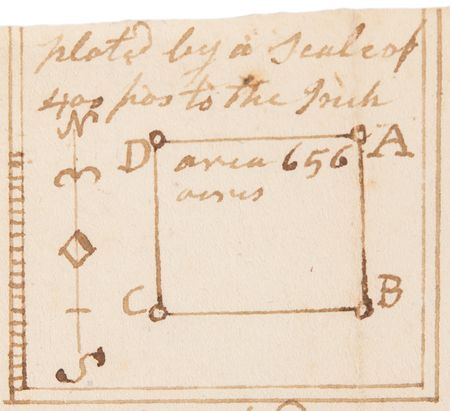 plated by a Scale of
400 pos to the Inch
N
D A
area 656
acres
C B
S